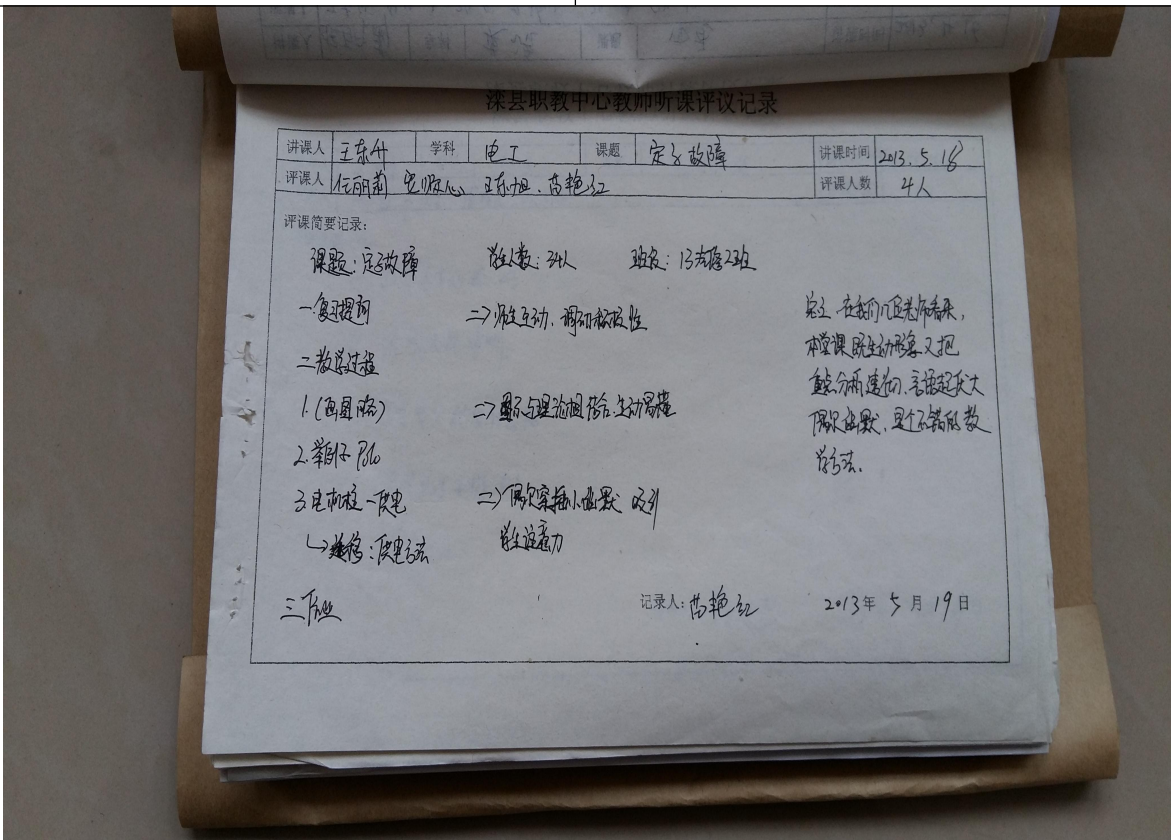 滦县职教中心教师听课评议记录
讲课人 王东升 学科 电工 课题 定子故障 讲课时间 2013.5.18
评课人 任丽莉 王东旭、高艳红 评课人数 4人
评课简要记录:
课题:定子故障 学生人数:34人 班级:13 2班
一.复习提问 =>师生互动、调动积极性
二.教学过程
1.(画图 略) =>显示与理论相结合 生动易懂
2.举例子 Polo
3.电机 一供电 =>偶尔穿插小幽默 吸引
学生注意力
↳ :供电方法
三.作业
在我们几位老师看来,
本堂课既生动形象又把
重点分析透彻、言语
偶尔幽默、是个不错的教
学方法.
记录人:高艳红 2013年 5月 19日